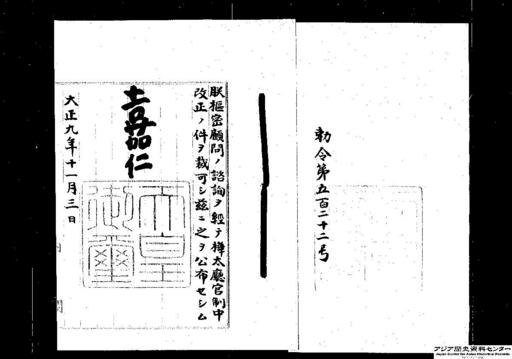 勅令第五百二十二号
朕樞密顧問ノ諮詢ヲ經テ樺太廳官制中
改正ノ件ヲ裁可シ茲ニ之ヲ公布セシム
嘉仁
天皇
御璽
大正九年十一月三日
アジア歴史資料センター
Japan Center for Asian Historical Records